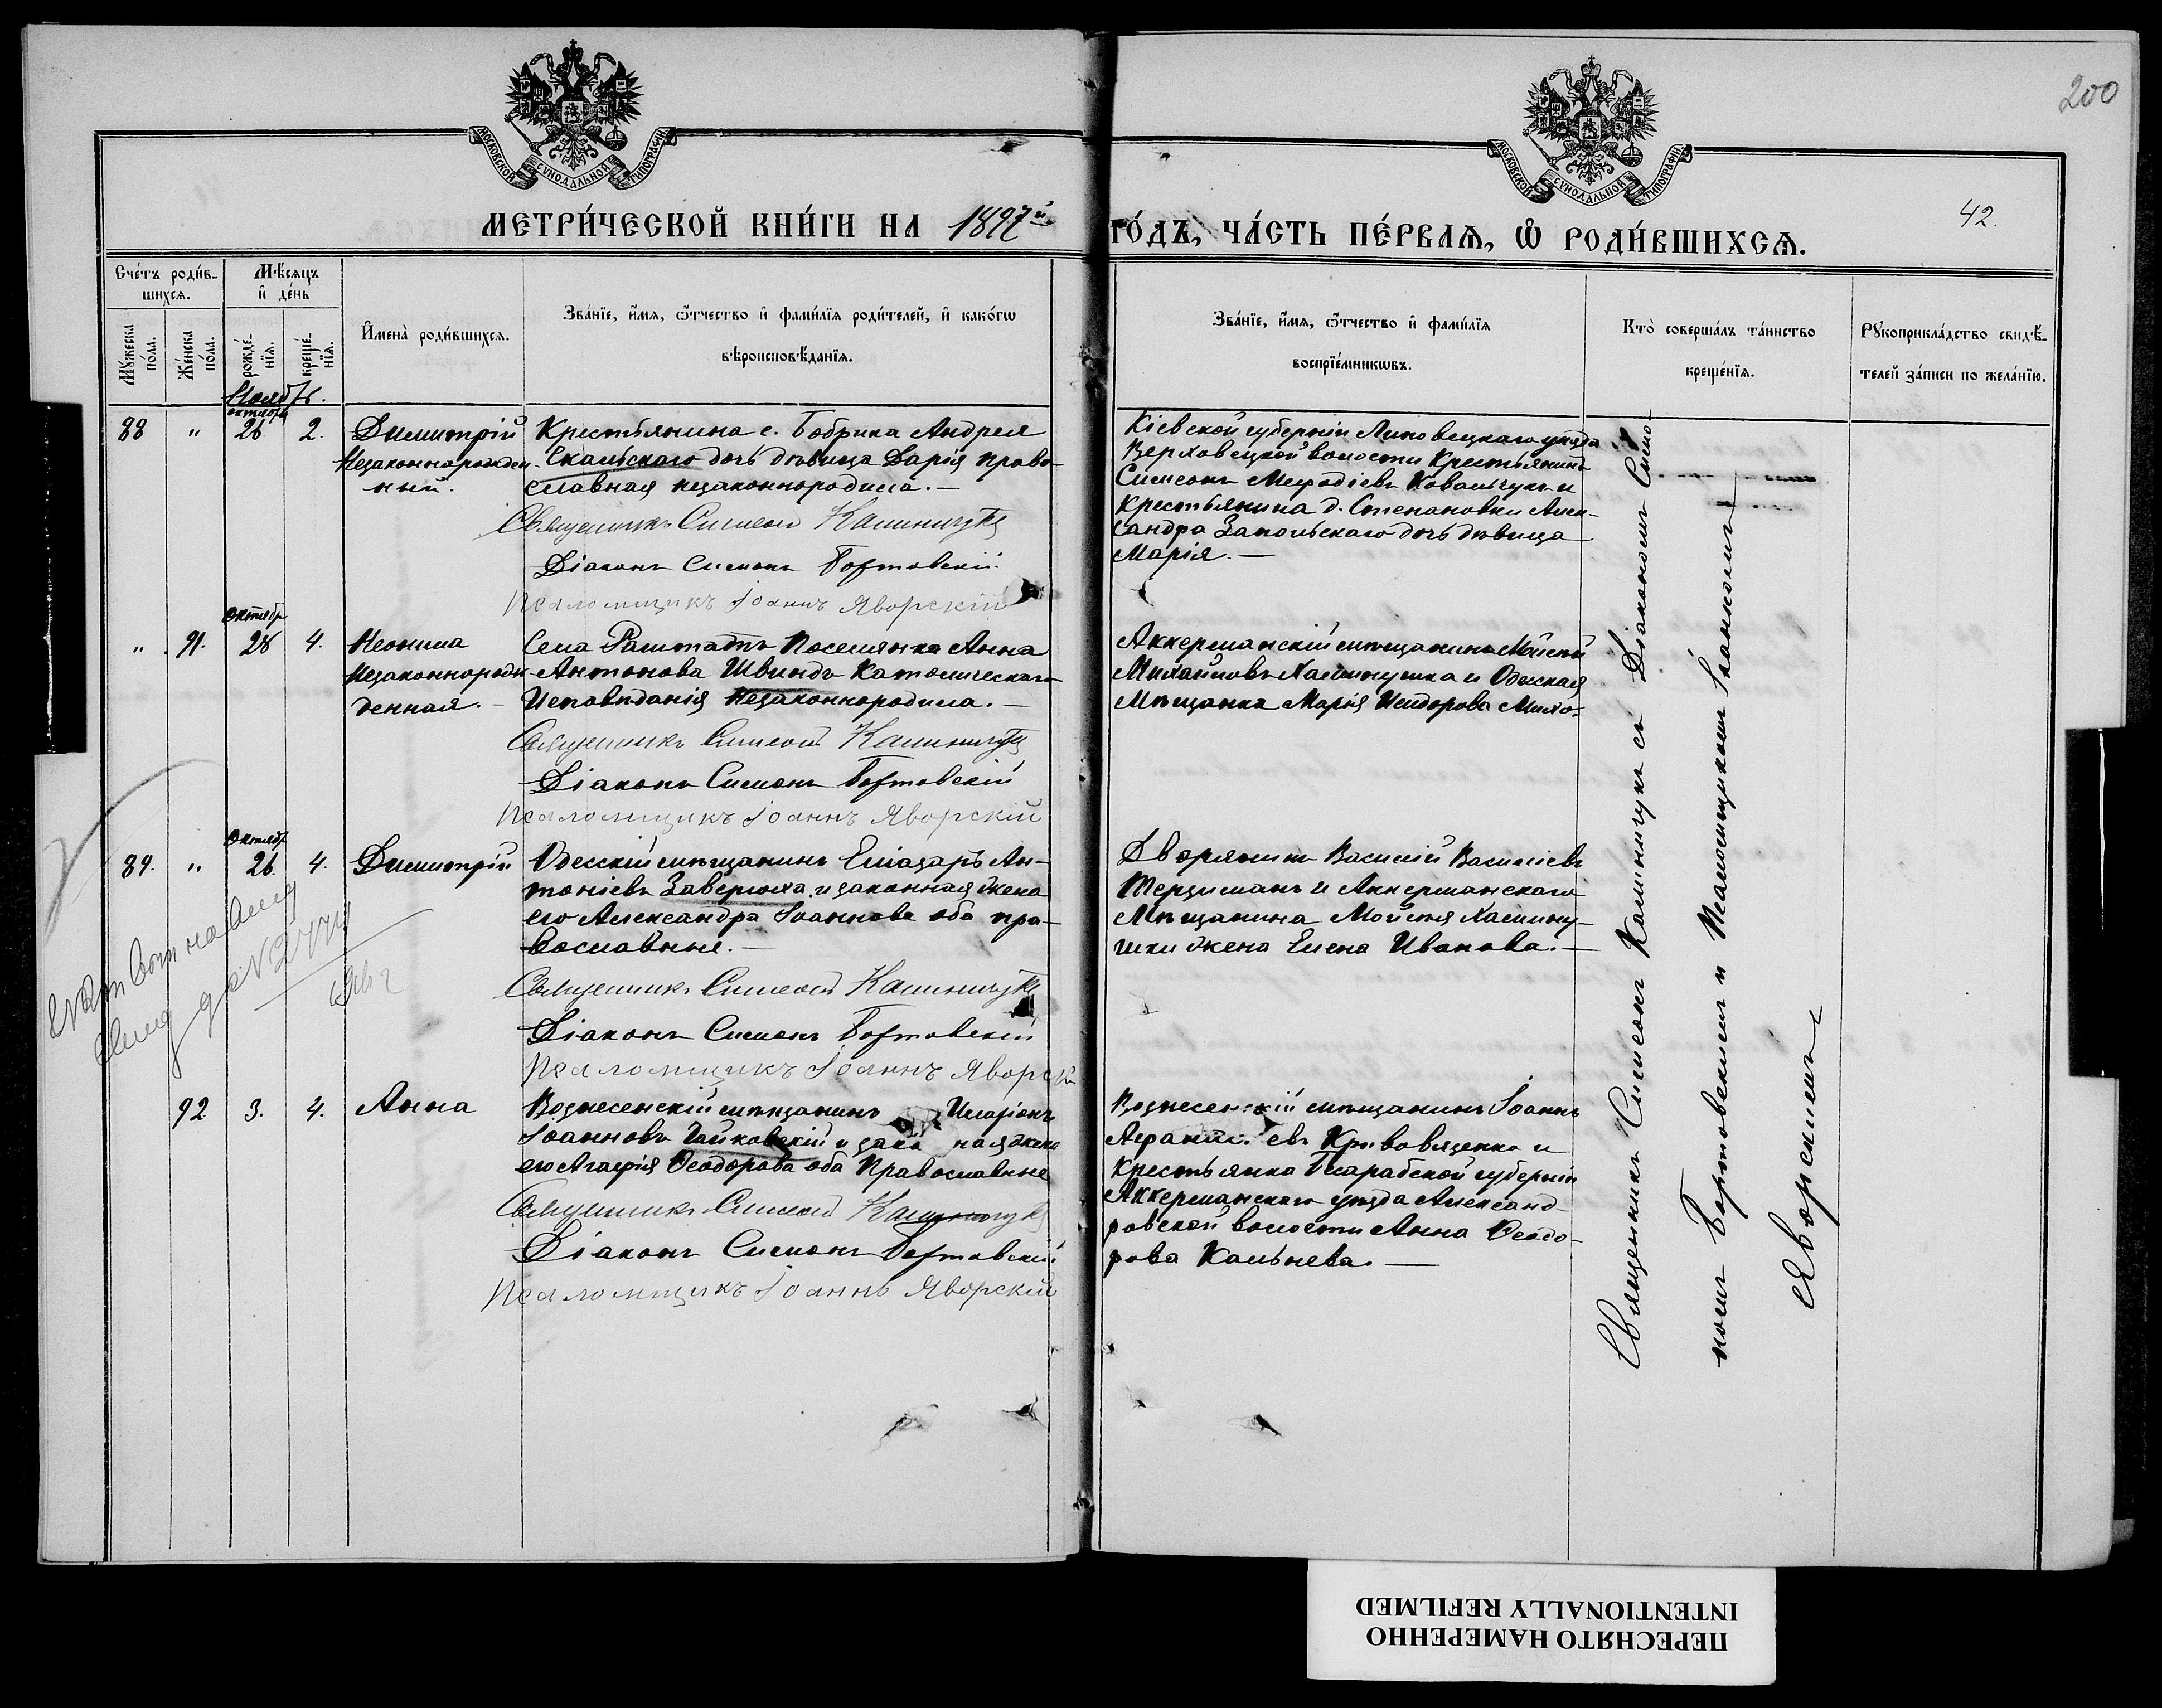 200
42.
МОСКОВСКОЙ СУНОДАЛЬНОЙ ТИПОГРАФІИ
МОСКОВСКОЙ СУНОДАЛЬНОЙ ТИПОГРАФІИ
МЕТРИ́ЧЕСКОЙ КНИ́ГИ НА 1897й
ГО́ДЪ, ЧА́СТЬ ПЕ́РВАЯ, Ѡ РОДИ́ВШИХСѦ.
Сче́тъ роди́в-
шихся.
Мѣ́сяцъ
и҆ де́нь
Мꙋ́жеска по́ла.
Же́нска по́ла.
рожде́-
нїя.
креще́-
нїя.
И҆мена̀ роди́вшихся.
Зва́нїе, и҆́мя, ѻ҆́тчество и҆ фами́лїя роди́телей, и҆ како́гѡ
вѣроисповѣ́данїя.
Зва́нїе, и҆́мя, ѻ҆́тчество и҆ фами́лїя
воспрїе́мникѡвъ.
Кто̀ соверша́лъ та́инство
креще́нїя.
Рꙋкоприкла́дство свидѣ́-
телей за́писи по жела́нїю.
Ноябрь.
октября
88 " 26 2. Димитрій
Незаконнорожден-
ный.
Крестьянина с. Бобрика Андрея
Скальскаго дочь дѣвица Дарія право-
славная незаконнородила.—
Священникъ Симеонъ Калиничукъ
Діаконъ Симонъ Бортовскій
Псаломщикъ Іоаннъ Яворскій
Кіевской губерніи Липовецкаго уѣзда
Верховецкой волости Крестьянинъ
Симеонъ Меѳодіевъ Ковальчукъ и
Крестьянина д. Степановки Алек-
сандра Запольскаго дочь дѣвица
Марія.—
Октябр
" 91. 28 4. Неонила
Незаконнорож-
денная.—
Села Раштатъ Поселянка Анна
Антонова Швиндъ Католическаго
Исповѣданія Незаконнородила.—
Священникъ Симеонъ Калиничукъ
Діаконъ Симонъ Бортовскій
Псаломщикъ Іоаннъ Яворскій
Аккерманскій мѣщанинъ Моисей
Михайловъ Халинушка и Одесская
Мѣщанка Марія Исидорова
Октябр
89. " 26. 4. Димитрій
Одесскій мѣщанинъ Еліазаръ Ан-
тоніевъ Заверюха и законная жена
его Александра Іоаннова оба пра-
вославные.—
Священникъ Симеонъ Калиничукъ
Діаконъ Симонъ Бортовскій
Псаломщикъ Іоаннъ Яворскій
Дворянинъ Василій Василіевъ
Терзиманъ и Аккерманскаго
Мѣщанина Моисея Халину-
шки жена Елена Иванова.—
92 3. 4. Анна
Вознесенскій мѣщанинъ Иларіонъ
Іоанновъ Чайковскій и зако ная жена
его Агафія Ѳеодорова оба Православные
Священникъ Симеонъ Калиничукъ
Діаконъ Симонъ Бортовскій
Псаломщикъ Іоаннъ Яворскій
Вознесенскій мѣщанинъ Іоаннъ
Афанасіевъ Кривовязенко и
Крестьянка Бесарабской губерніи
Аккерманскаго уѣзда Александ-
ровской волости Анна Ѳеодо-
рова Кольнева.—
Священникъ Симеонъ Калиничукъ съ Діакономъ Симо-
номъ Бортовскимъ и Псаломщикомъ Іоанномъ
Яворскимъ
ПЕРЕСНЯТО НАМЕРЕННО
INTENTIONALLY REFILMED